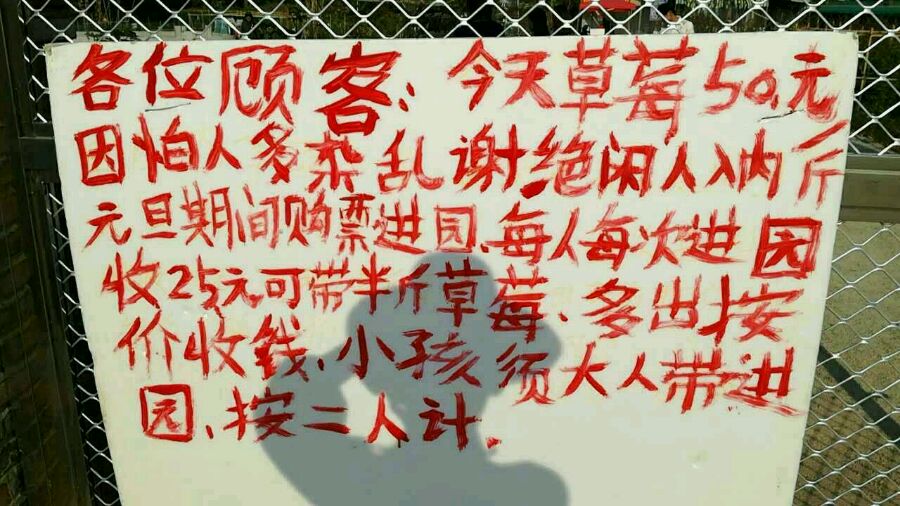 各位顾客:今天草莓50元
因怕人多杂乱谢绝闲人入内斤
元旦期间购票进园、每人每次进园
收25元可带半斤草莓、多出按
价收钱、小孩须大人带进
园、按二人计.